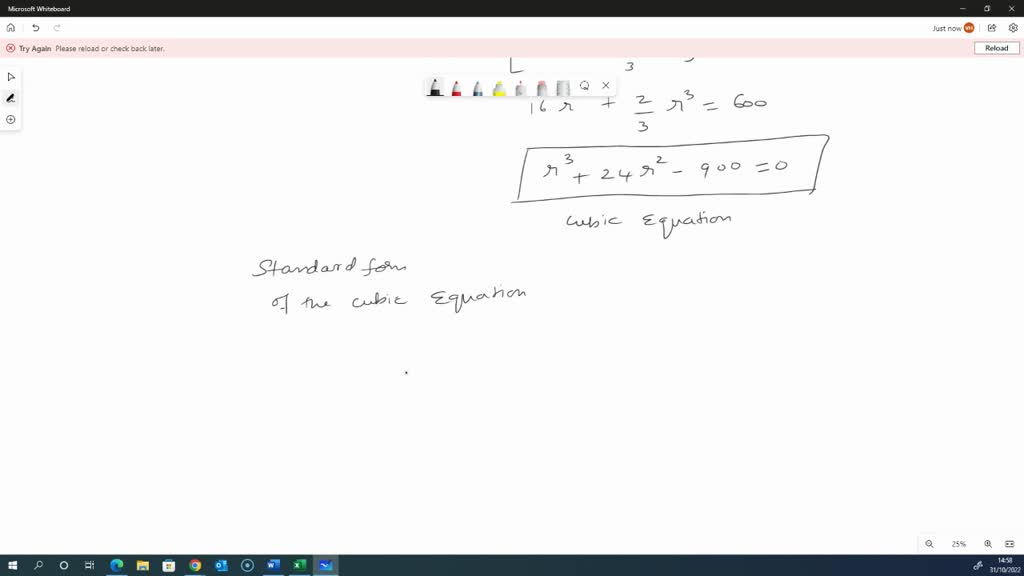 Microsoft Whiteboard
Just now VH
Try Again Please reload or check back later.
Reload
3
16 r + 2/3 r³ = 600
r³ + 24 r² - 900 = 0
cubic Equation
Standard form
of the cubic Equation
25%
14:58
31/10/2022